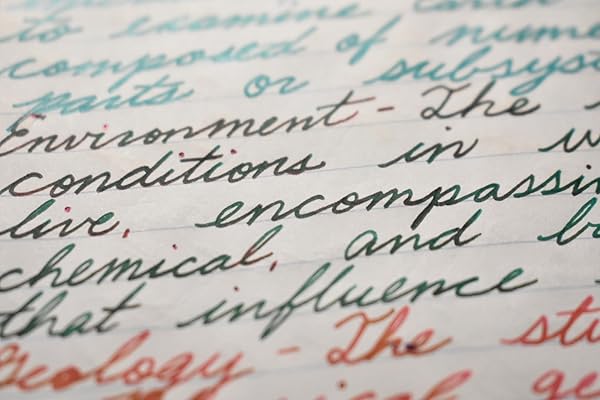 to examine
composed of
parts or
Environment - The
conditions in
live, encompassin
chemical, and
that influence
Geology - The